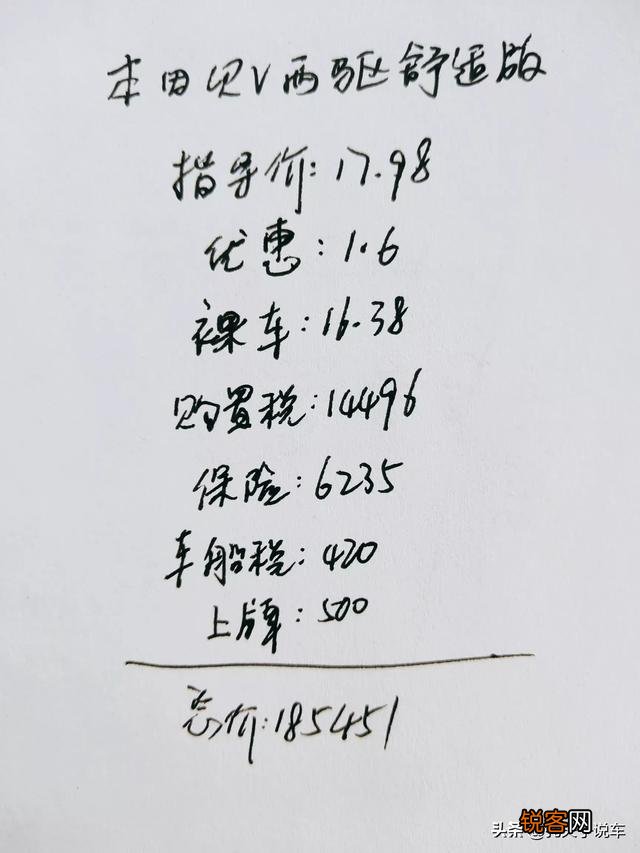 本田 V两驱舒适版
指导价:17.98
优惠:1.6
裸车:16.38
购置税:14496
保险:6235
车船税:420
上牌:500
总价:185451
头条 说车
锐客网